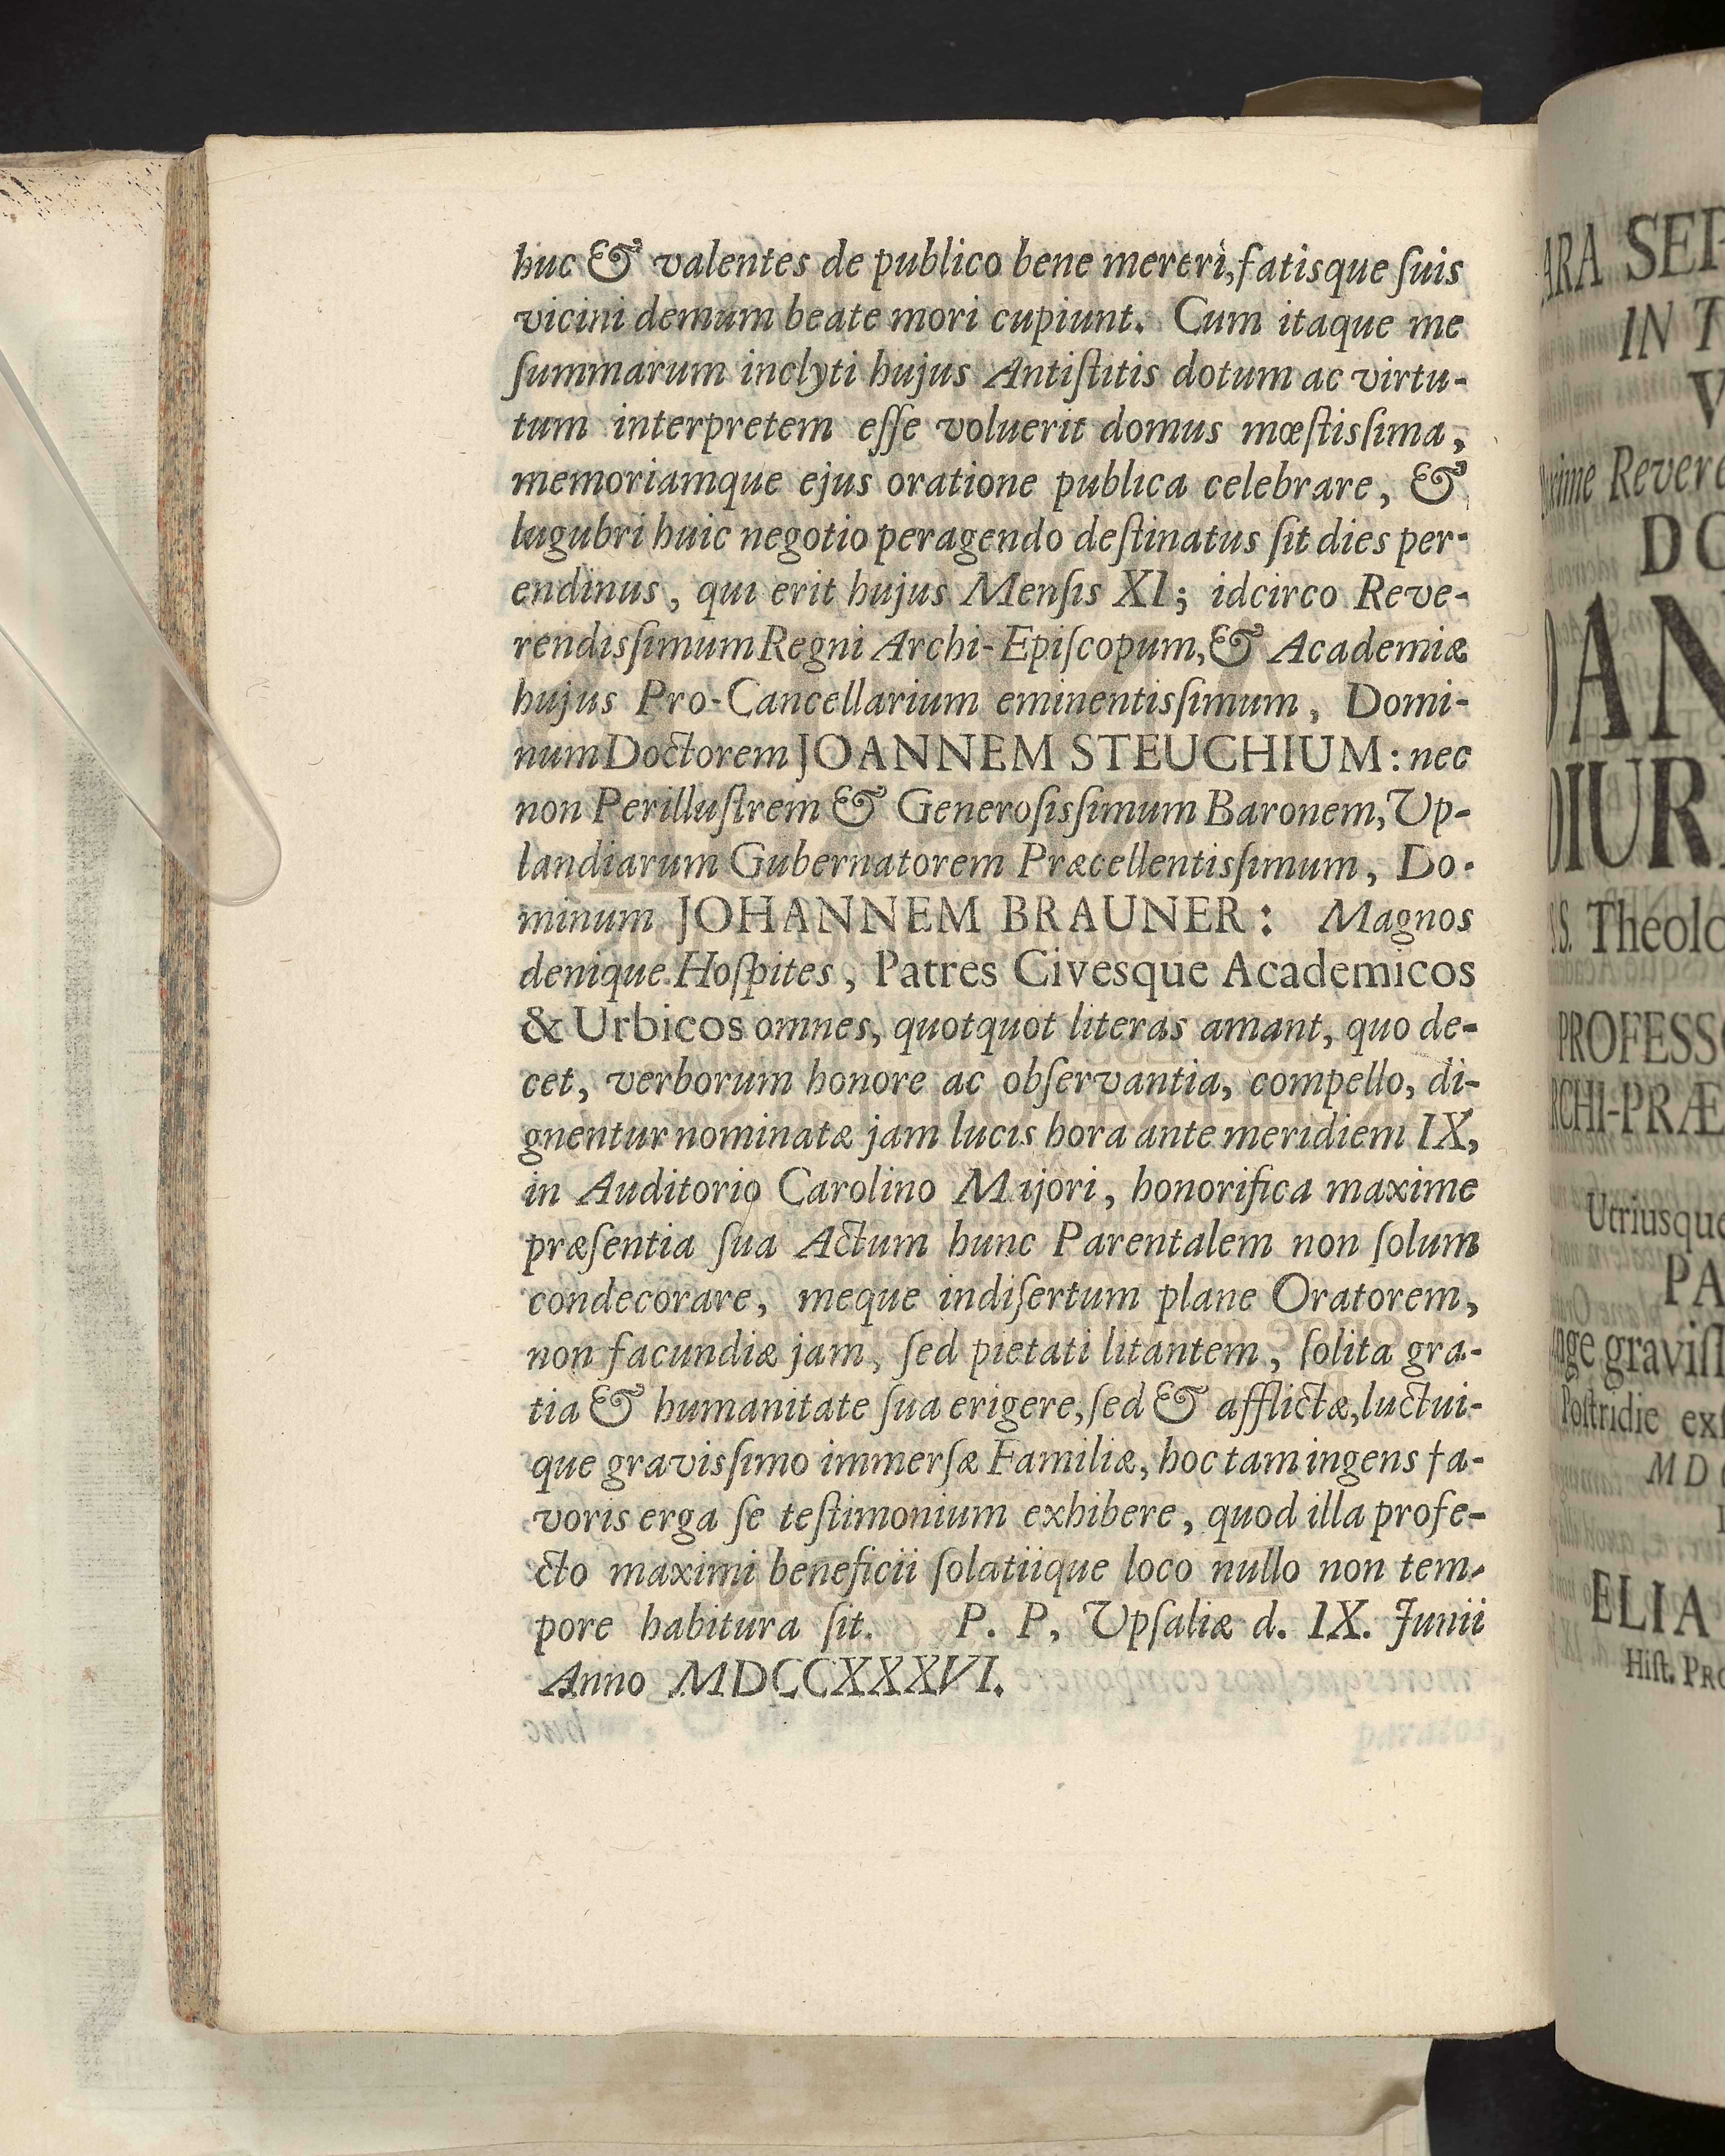 huc & valentes de publico bene mereri, fatisque ſuis
vicini demum beate mori cupiunt. Cum itaque me
ſummarum inclyti hujus Antiſtitis dotum ac virtu-
tum interpretem eſſe voluerit domus mœſtisſima,
memoriamque ejus oratione publica celebrare, &
lugubri huic negotio peragendo deſtinatus ſit dies per-
endinus, qui erit hujus Menſis XI; idcirco Reve-
rendisſimum Regni Archi-Epiſcopum, & Academiæ
hujus Pro-Cancellarium eminentisſimum, Domi-
num Doctorem JOANNEM STEUCHIUM: nec
non Perilluſtrem & Generoſisſimum Baronem, Up-
landiarum Gubernatorem Præcellentisſimum, Do-
minum JOHANNEM BRAUNER: Magnos
denique Hoſpites, Patres Civesque Academicos
& Urbicos omnes, quotquot literas amant, quo de-
cet, verborum honore ac obſervantia, compello, di-
gnentur nominatæ jam lucis hora ante meridiem IX,
in Auditorio Carolino Majori, honorifica maxime
præſentia ſua Actum hunc Parentalem non ſolum
condecorare, meque indiſertum plane Oratorem,
non facundiæ jam, ſed pietati litantem, ſolita gra-
tia & humanitate ſua erigere, ſed & afflictæ, luctui-
que gravisſimo immerſæ Familiæ, hoc tam ingens fa-
voris erga ſe teſtimonium exhibere, quod illa profe-
cto maximi beneficii ſolatiique loco nullo non tem-
pore habitura ſit. P. P. Upſaliæ d. IX. Junii
Anno MDCCXXXVI.
ARA SEP
IN T
V
Revere
DO
DAN
DIUR
S. Theolo
PROFESSO
RCHI-PRÆ
Utriusque
PA
graviſſ
Poſtridie exſ
MD
ELIA
Hiſt. PRO